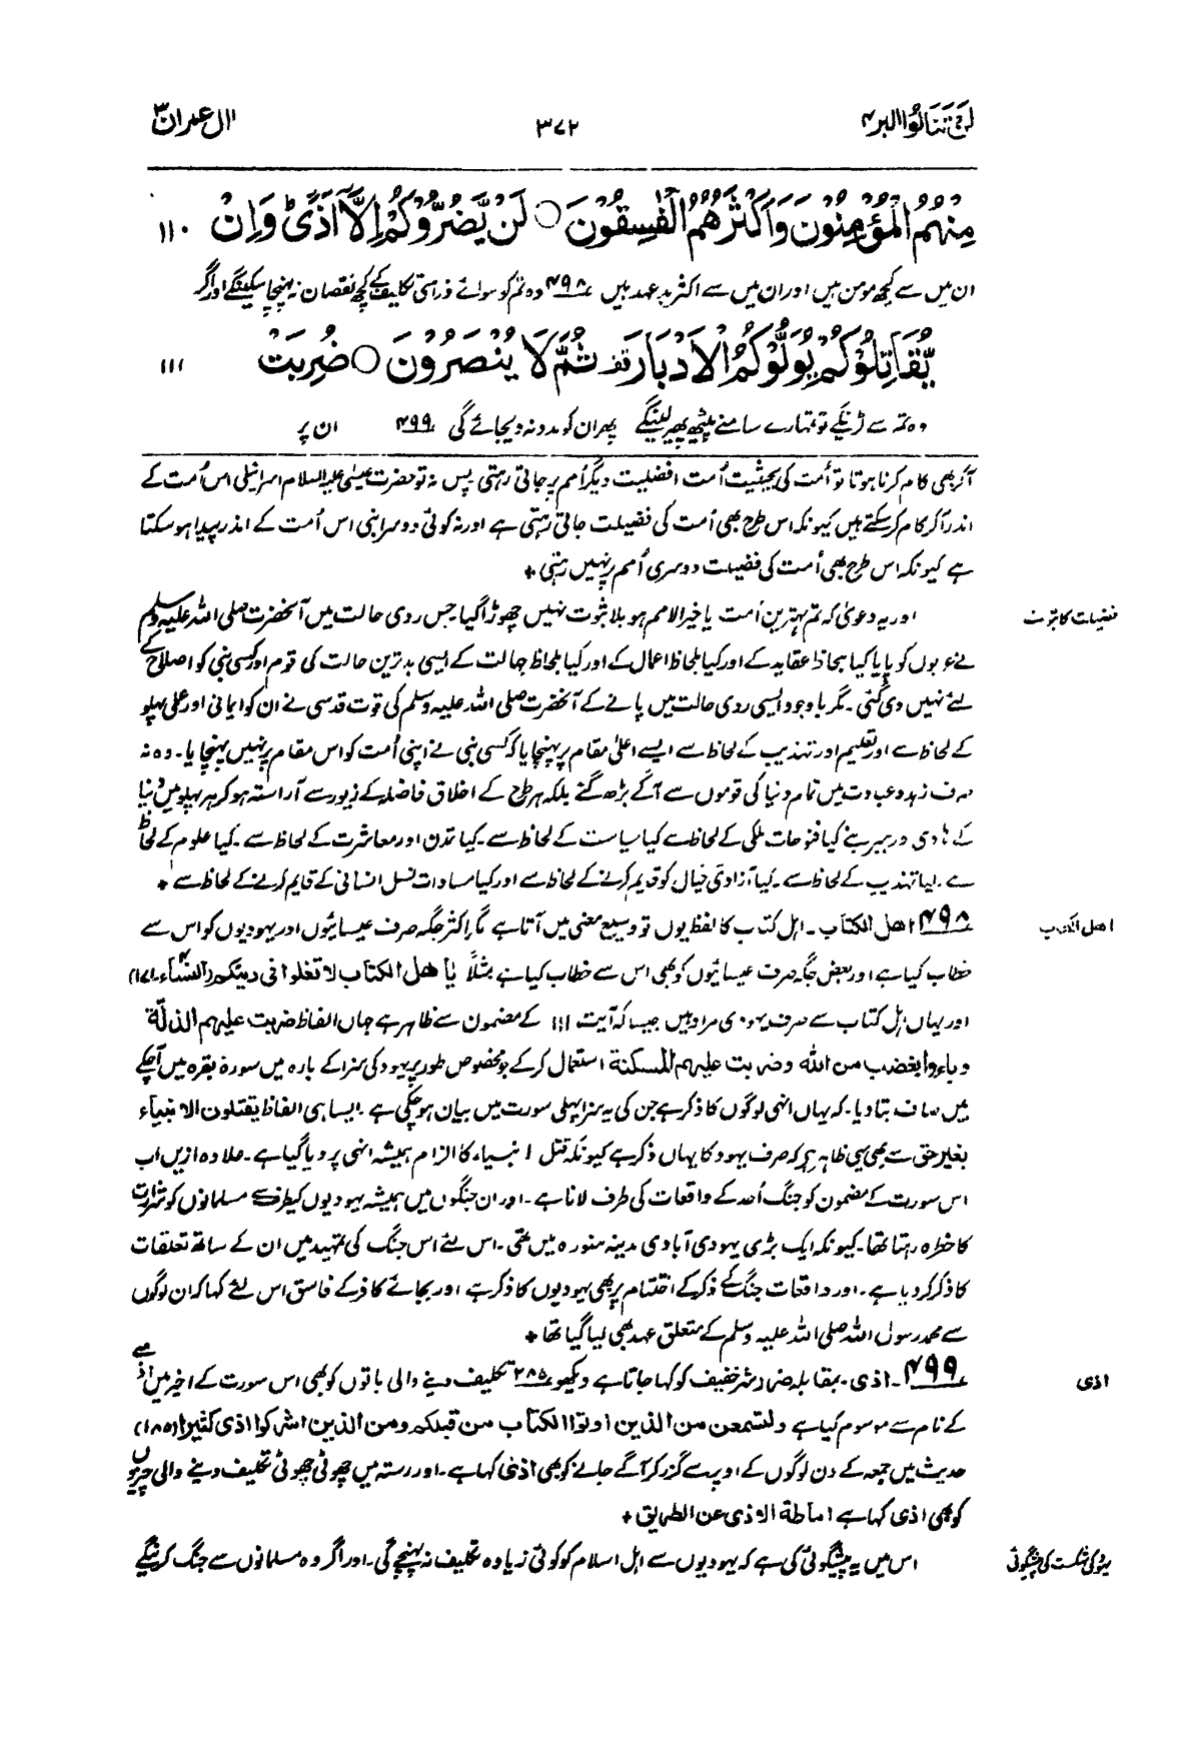 لن تنالوا البر ۴
۳۷۲
اٰل عمران ۳
مِنْهُمُ الْمُؤْمِنُوْنَ وَاَكْثَرُهُمُ الْفٰسِقُوْنَ ○ لَنْ يَّضُرُّوْكُمْ اِلَّآ اَذًى ؕ وَاِنْ ۱۱۰
ان میں سے کچھ مومن ہیں اور ان میں سے اکثر بدعہد ہیں ۴۹۸ وہ تم کو سوائے ذرا سی تکلیف کے کچھ نقصان نہ پہنچا سکینگے اور اگر
يُّقَاتِلُوْكُمْ يُوَلُّوْكُمُ الْاَدْبَارَ قف ثُمَّ لَا يُنْصَرُوْنَ ○ ضُرِبَتْ ۱۱۱
وہ تم سے لڑینگے تو تمہارے سامنے پیٹھ پھیر لینگے پھر ان کو مدد نہ دیجائے گی ۴۹۹ ان پر
آکر بھی کام کرنا ہوتا تو اُمت کی بحیثیت اُمت افضلیت دیگر اُمم پر جاتی رہتی پس نہ تو حضرت عیسیٰ علیہ السلام اسرائیلی اس اُمت کے
اندر آکر کام کر سکتے ہیں کیونکہ اس طرح بھی اُمت کی فضیلت جاتی رہتی ہے اور نہ کوئی دوسرا نبی اس اُمت کے اندر پیدا ہو سکتا
ہے کیونکہ اس طرح بھی اُمت کی فضیلت دوسری اُمم پر نہیں رہتی +
فضیلت کا ثبوت
اور یہ دعویٰ کہ تم بہترین اُمت یا خیر الامم ہو بلا ثبوت نہیں چھوڑا گیا جس ردی حالت میں آنحضرت صلی اللہ علیہ وسلم
نے عربوں کو پایا کیا بلحاظ عقاید کے اور کیا بلحاظ اعمال کے اور کیا بلحاظ جہالت کے ایسی بدترین حالت کی قوم اور کسی نبی کو اصلاح کے
لئے نہیں دی گئی ۔ مگر باوجود ایسی ردی حالت میں پانے کے آنحضرت صلی اللہ علیہ وسلم کی قوت قدسی نے ان کو ایمانی اور عملی پہلو
کے لحاظ سے اور تعلیم اور تہذیب کے لحاظ سے ایسے اعلیٰ مقام پر پہنچایا کہ کسی نبی نے اپنی اُمت کو اس مقام پر نہیں پہنچایا ۔ وہ نہ
صرف زہد و عبادت میں تمام دنیا کی قوموں سے آگے بڑھ گئے بلکہ ہر طرح کے اخلاق فاضلہ کے زیور سے آراستہ ہو کر ہر پہلو میں دنیا
کے ہادی و رہبر بنے کیا فتوحات ملکی کے لحاظ سے کیا سیاست کے لحاظ سے ۔ کیا تمدن اور معاشرت کے لحاظ سے ۔ کیا علوم کے لحاظ
سے ۔ کیا تہذیب کے لحاظ سے ۔ کیا آزادی خیال کو قدیم کرنے کے لحاظ سے اور کیا مساوات نسل انسانی کے قایم کرنے کے لحاظ سے +
اھل الکتاب
۴۹۸ اھل الکتاب ۔ اہل کتاب کا لفظ یوں تو وسیع معنی میں آتا ہے مگر اکثر جگہ صرف عیسائیوں اور یہودیوں کو اس سے
خطاب کیا ہے اور بعض جگہ صرف عیسائیوں کو بھی اس سے خطاب کیا ہے مثلاً یا ھل الکتاب لا تغلوا فی دینکم (النساء ۴ ۔ ۱۷۱)
اور یہاں اہل کتاب سے صرف یہودی مراد ہیں جیسا کہ آیت ۱۱۱ کے مضمون سے ظاہر ہے جہاں الفاظ ضربت علیھم الذلۃ
وباءو ا بغضب من اللہ وضربت علیھم المسکنۃ استعمال کرکے جو مخصوص طور پر یہود کی سزا کے بارہ میں سورۃ بقرہ میں آچکے
ہیں صاف بتا دیا ۔ کہ یہاں انہی لوگوں کا ذکر ہے جن کی یہ سزا پہلی سورت میں بیان ہو چکی ہے ۔ ایسا ہی الفاظ یقتلون الانبیآء
بغیر حق سے بھی یہی ظاہر ہے کہ صرف یہود کا یہاں ذکر ہے کیونکہ قتل انبیاء کا الزام ہمیشہ انہی پر دیا گیا ہے ۔ علاوہ ازیں اب
اس سورت کے مضمون کو جنگ اُحد کے واقعات کی طرف لانا ہے ۔ اور ان جنگوں میں ہمیشہ یہودیوں کیطرف سے مسلمانوں کو شرارت
کا خطرہ رہتا تھا ۔ کیونکہ ایک بڑی یہودی آبادی مدینہ منورہ میں تھی ۔ اس لئے اس جنگ کی تمہید میں ان کے ساتھ تعلقات
کا ذکر کر دیا ہے ۔ اور واقعات جنگ کے ذکر کے اختتام پر بھی یہودیوں کا ذکر ہے اور بجائے کافر کے فاسق اس لئے کہا کہ ان لوگوں
سے محمد رسول اللہ صلی اللہ علیہ وسلم کے متعلق عہد بھی لیا گیا تھا +
اذی
۴۹۹ ۔ اذی ۔ بمقابلہ ضرر شر خفیف کو کہا جاتا ہے دیکھو ۲۸۵ تکلیف دینے والی باتوں کو بھی اس سورت کے اخیر میں اذی ہے
کے نام سے موسوم کیا ہے ولتسمعن من الذین اوتوا الکتاب من قبلکم ومن الذین اشرکوا اذی کثیرا (۱۸۵)
حدیث میں جمعہ کے دن لوگوں کے اوپر سے گزر کر آگے جانے کو بھی اذی کہا ہے ۔ اور رستہ میں چھوٹی چھوٹی تکلیف دینے والی چیزوں
کو بھی اذی کہا ہے اماطۃ الاذی عن الطریق +
یہود کی شکست کی پیشگوئی
اس میں یہ پیشگوئی کی ہے کہ یہودیوں سے اہل اسلام کو کوئی زیادہ تکلیف نہ پہنچے گی ۔ اور اگر وہ مسلمانوں سے جنگ کرینگے